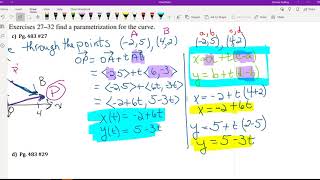 Exercises 27–32 find a parametrization for the curve.
c) Pg. 483 #27
A B
through the points (-2,5), (4,2)
OP = OA + t AB
= <-2,5> + t<6,-3>
= <-2,5> + <6t,-3t>
= <-2+6t, 5-3t>
x(t) = -2+6t
y(t) = 5-3t
B
P
4 x
a, b c, d
(-2,5), (4,2)
x = a + t(c-a)
y = b + t(d-b)
x = -2 + t(4+2)
x = -2+6t
y = 5 + t(2-5)
y = 5-3t
d) Pg. 483 #29